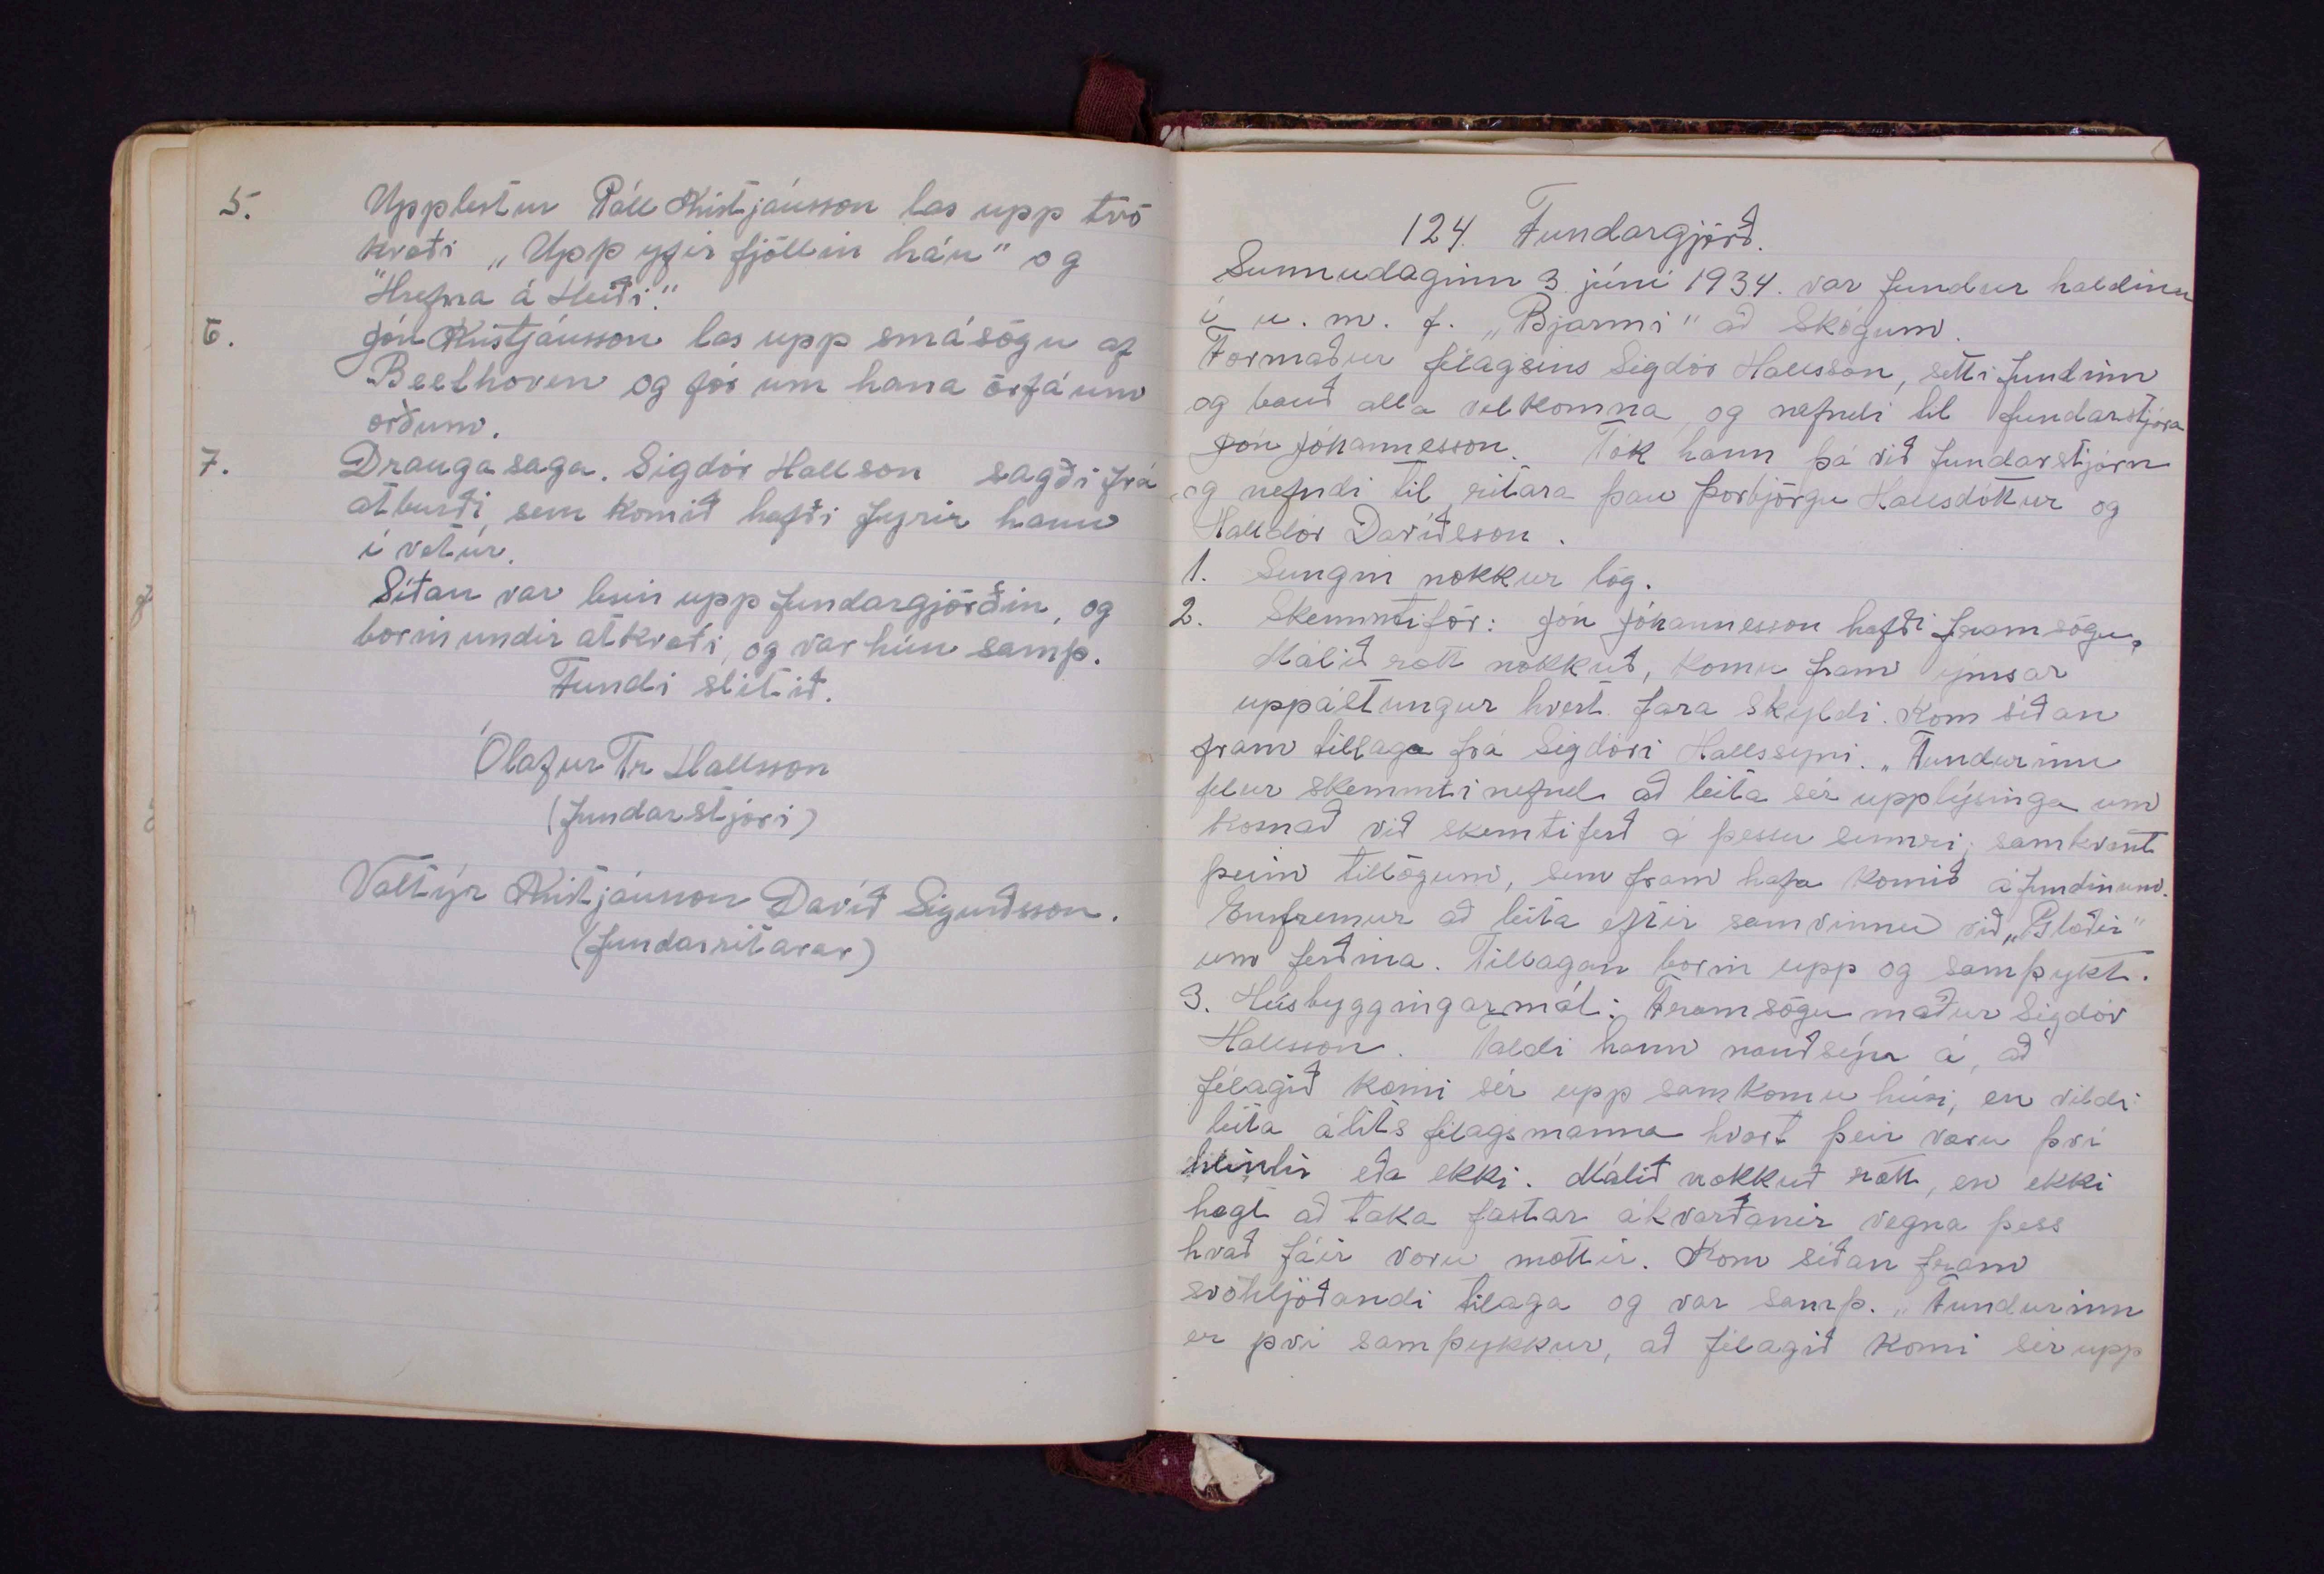 5. Upplestur Páll Kristjánsson las upp tvö
kvæði „Upp yfir fjöllin háu" og
"Hrefna á Heiði."
6. Jón Kristjánsson las upp smásögu af
Beethoven og fór um hana örfáum
orðum.
7. Draugasaga. Sigdór Hallson sagði frá
atburði, sem komið hafði fyrir hann
í vetur.
Síðan var lesin upp fundargjörðin, og
borin undir atkvæði, og var hún samþ.
Fundi slitið.
Ólafur Tr Hallsson
(fundarstjóri)
Valtýr Kristjánsson Davíð Sigurðsson.
(fundarritarar)
124. Fundargjörð.
Sunnudaginn 3 júní 1934. var fundur haldinn
í u. m. f. „Bjarmi" að Skógum.
Formaður félagsins Sigdór Hallsson, setti fundinn
og bauð alla velkomna, og nefndi til fundarstjóra
Jón Jóhannesson. Tók hann þá við fundarstjórn
og nefndi til ritara þau Þorbjörgu Hallsdóttur og
Halldór Davíðsson.
1. Sungin nokkur lög.
2. Skemmtiför: Jón Jóhannesson hafði framsögu,
Málið rætt nokkuð, komu fram ýmsar
uppástungur hvert fara skyldi. Kom síðan
fram tillaga frá Sigdóri Hallssyni. „Fundurinn
felur skemmtinefnd að leita sér upplýsinga um
kosnað við skemtiferð á þessu sumri, samkvæmt
þeim tillögum, sem fram hafa komið á fundinum.
Ennfremur að leita eftir samvinnu við „Glæðir"
um ferðina. Tillagan borin upp og samþykt.
3. Húsbyggingarmál: Framsögumaður Sigdór
Hallsson. Taldi hann nauðsýn á, að
félagið komi sér upp samkomuhúsi, en vildi
leita álits félagsmanna hvort þeir væru því
hlintir eða ekki. Málið nokkuð rætt, en ekki
hægt að taka fastar ákvarðanir vegna þess
hvað fáir voru mættir. Kom síðan fram
svohljóðandi tilaga og var samþ. „Fundurinn
er því samþykkur, að félagið komi sér upp